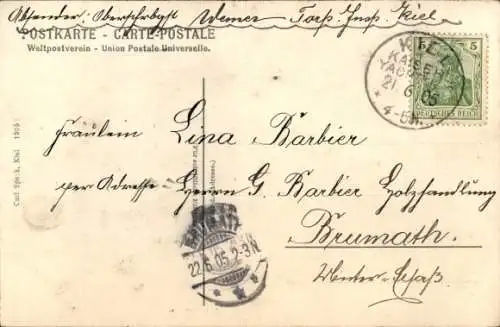 Absender: Werner Torp. Insp. Kiel
POSTKARTE - CARTE POSTALE
Weltpostverein - Union Postale Universelle.
5
DEUTSCHES REICH
KIEL
KAISER
21 6 05
4-5N.
Fräulein Lina Barbier
per Adresse Herrn G. Barbier Holzhandlung
Brumath.
Unter-Elsaß.
22.6.05.2-3N
Carl Speck, Kiel 1905